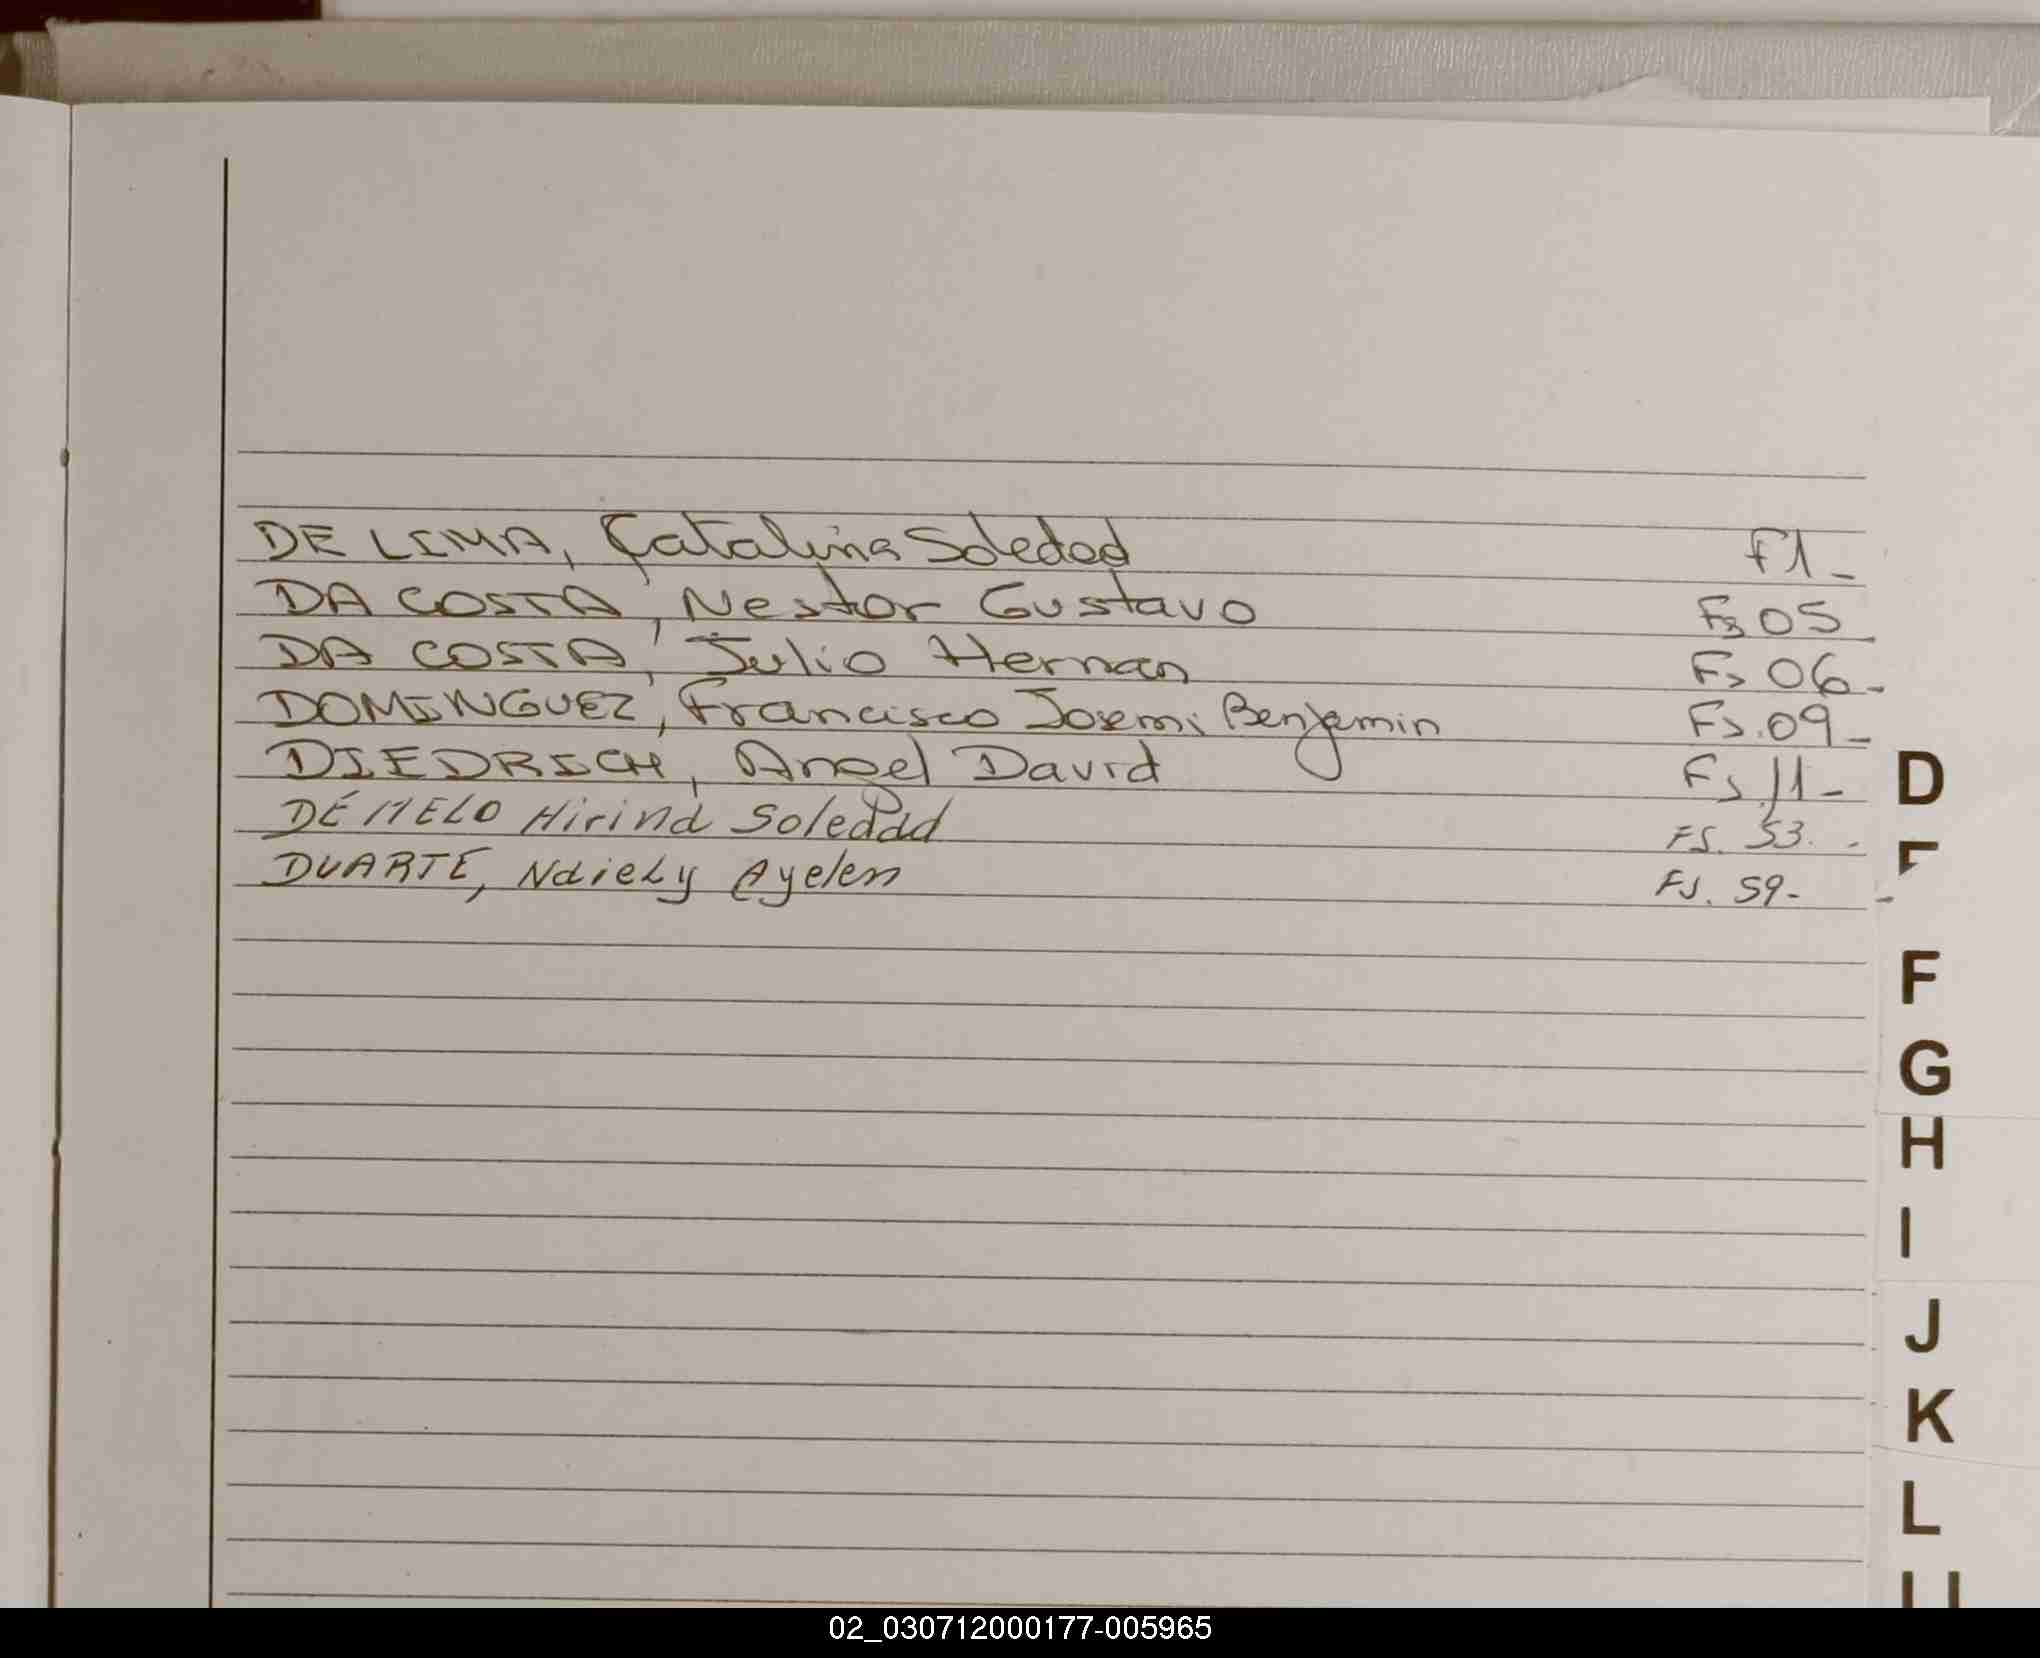 DE LIMA, Catalina Soledad F1-
DA COSTA, Nestor Gustavo Fs 05-
DA COSTA, Julio Hernan Fs 06-
DOMINGUEZ, Francisco Josemi Benjamin Fs.09-
DIEDRICH, Angel David Fs.11-
DE MELO Mirina Soledad FS. 53.-
DUARTE, Naiely Ayelen FS. 59-
D
E
F
G
H
I
J
K
L
02_030712000177-005965